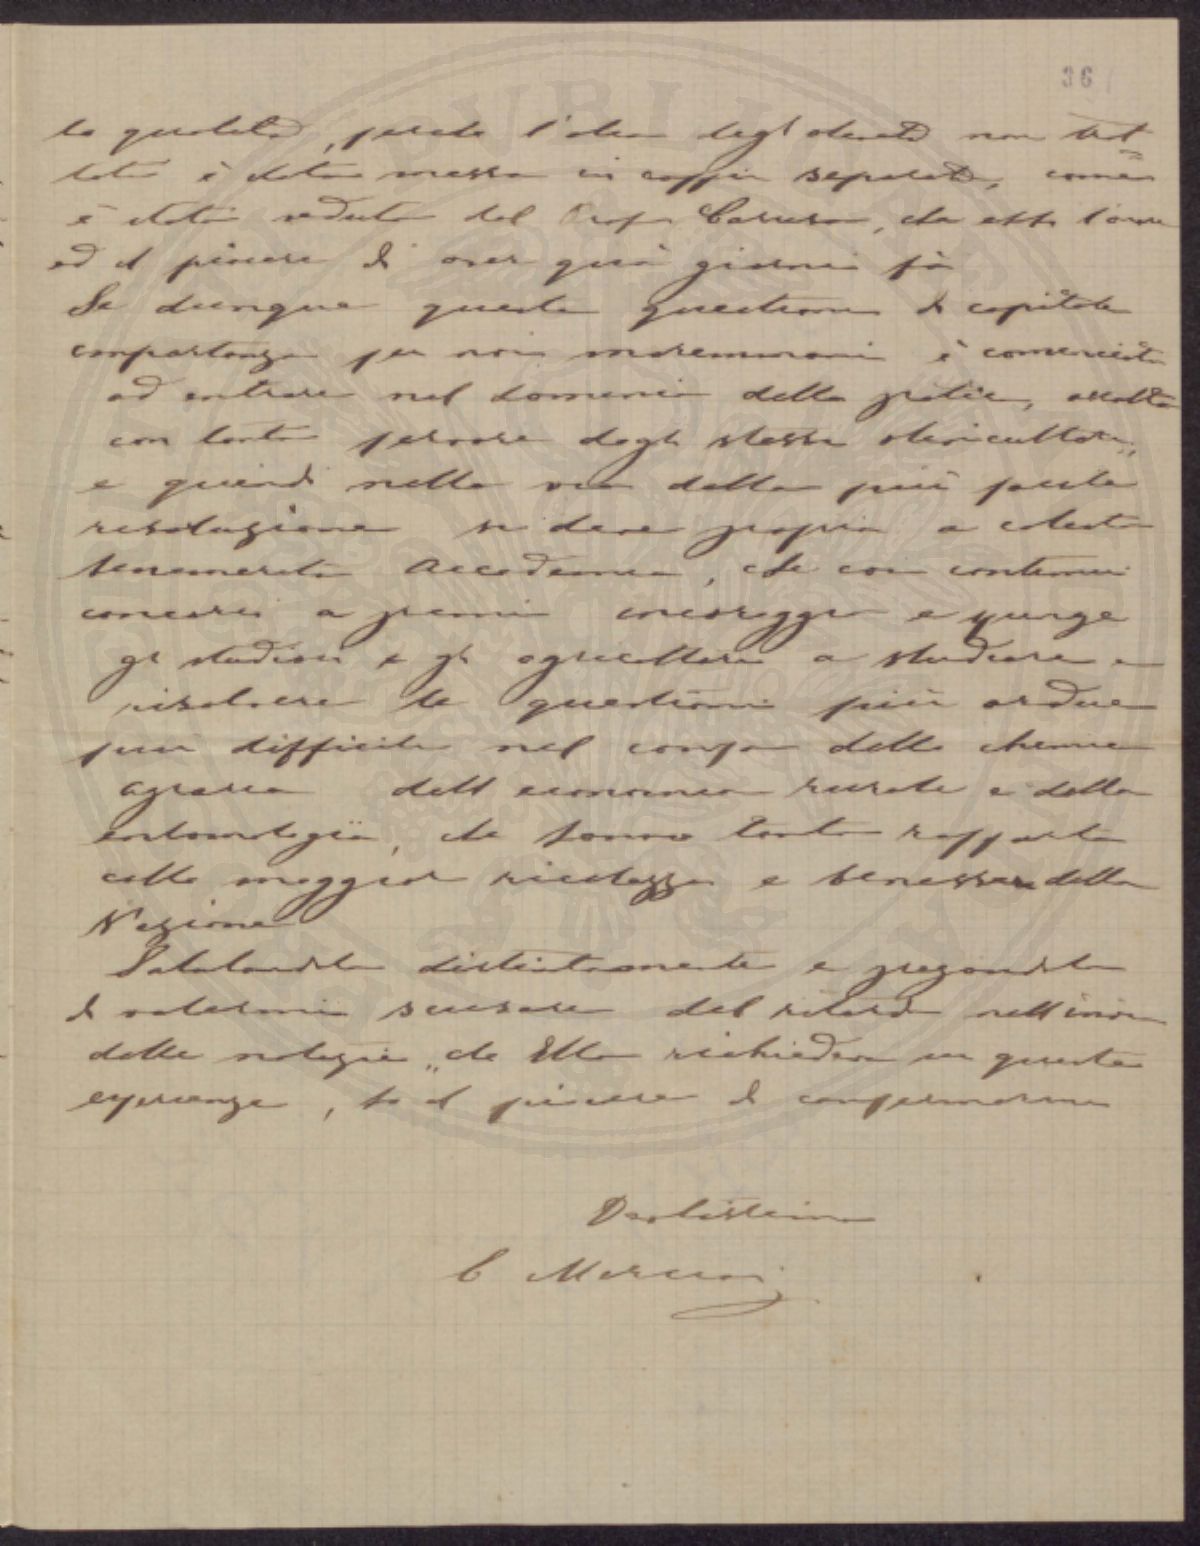 36
la qualità, perché l'olio degl'oliveti non trat=
tati è stato messo in coppi separati, come
è stato veduto dal Prof. Caruso, che ebbi l'onore
ed il piacere di aver quà giorni fà
Se dunque questa questione di capitale
importanza per noi maremmani è cominciata
ad entrare nel dominio della pratica, accolta
con tanto fervore dagli stessi olivicultori,
e quindi nella via della più pratica
risoluzione si deve proprio a cotesta
benemerita Accademia, che con continui
concorsi a premi incoraggia e spinge
gli studiosi e gli agricoltori a studiare e
risolvere le questioni più ardue e
più difficili nel campo della chimica
agraria dell'economia rurale e della
entomologia, che hanno tanto rapporto
colla maggior ricchezza e benessere della
Nazione
Salutandola distintamente e pregandola
di volermi scusare del ritardo nell'invio
delle notizie, che Ella richiedeva su queste
esperienze, ho il piacere di confermarmi
Devotissimo
C